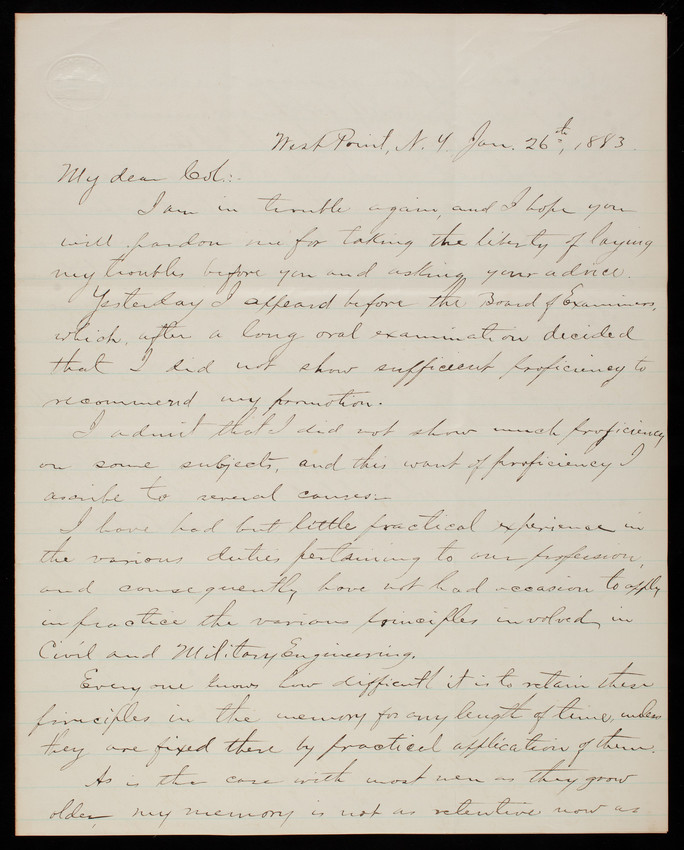 West Point, N.Y. Jan. 26th, 1883.
My dear Col.:-
I am in trouble again, and I hope you
will pardon me for taking the liberty of laying
my troubles before you and asking your advice.
Yesterday I appeard before the Board of Examiners,
which, after a long oral examination decided
that I did not show sufficient proficiency to
recommend my promotion.
I admit that I did not show much proficiency
on some subjects, and this want of proficiency I
ascribe to several causes:-
I have had but little practical experience in
the various duties pertaining to our profession,
and consequently have not had occasion to apply
in practice the various principles involved in
Civil and Military Engineering.
Every one knows how difficult it is to retain these
principles in the memory for any length of time, unless
they are fixed there by practical application of them.
As is the case with most men as they grow
older, my memory is not as retentive now as